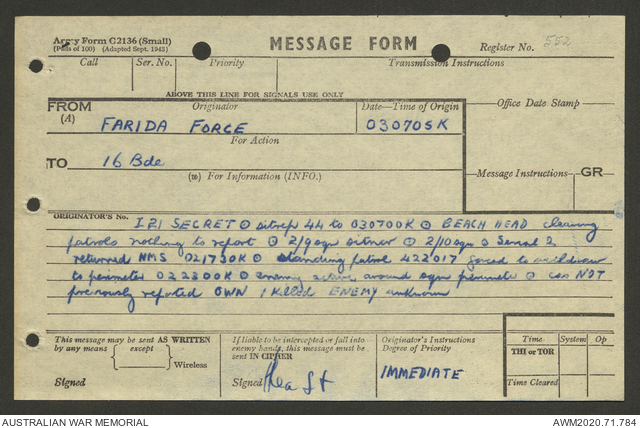 Army Form C2136 (Small)
(Pads of 100) (Adapted Sept. 1943)
MESSAGE FORM
Register No. 552
Call Ser. No. Priority Transmission Instructions
ABOVE THIS LINE FOR SIGNALS USE ONLY
FROM Originator Date—Time of Origin Office Date Stamp
(A) FARIDA FORCE 030705K
For Action
TO 16 Bde
(W) For Information (INFO.) Message Instructions GR
ORIGINATOR'S No. I21 SECRET ⊙ sitrep 44 to 030700K ⊙ BEACH HEAD clearing
patrols nothing to report ⊙ 2/9 ⊙ 2/10 ⊙ Serial 2
returned NMS 021730K ⊙ standing patrol 422017 forced to withdraw
to perimeter 022300K ⊙ enemy active around perimeter ⊙ cas NOT
previously reported OWN 1 killed ENEMY unknown
This message may be sent AS WRITTEN
by any means except
Wireless
Signed
If liable to be intercepted or fall into
enemy hands, this message must be
sent IN CIPHER
Signed
Originator's Instructions
Degree of Priority
IMMEDIATE
Time System Op
THI or TOR
Time Cleared
AUSTRALIAN WAR MEMORIAL AWM2020.71.784